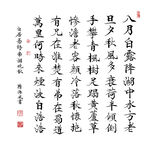 八月白露降湖中水方老
旦夕秋風多衰荷半傾倒
手攀青楓樹足蹋黃蘆草
慘澹老容顏冷落秋懷抱
有兄在淮楚有弟在蜀道
萬里何時來煙波白浩浩
白居易詩南湖晚秋